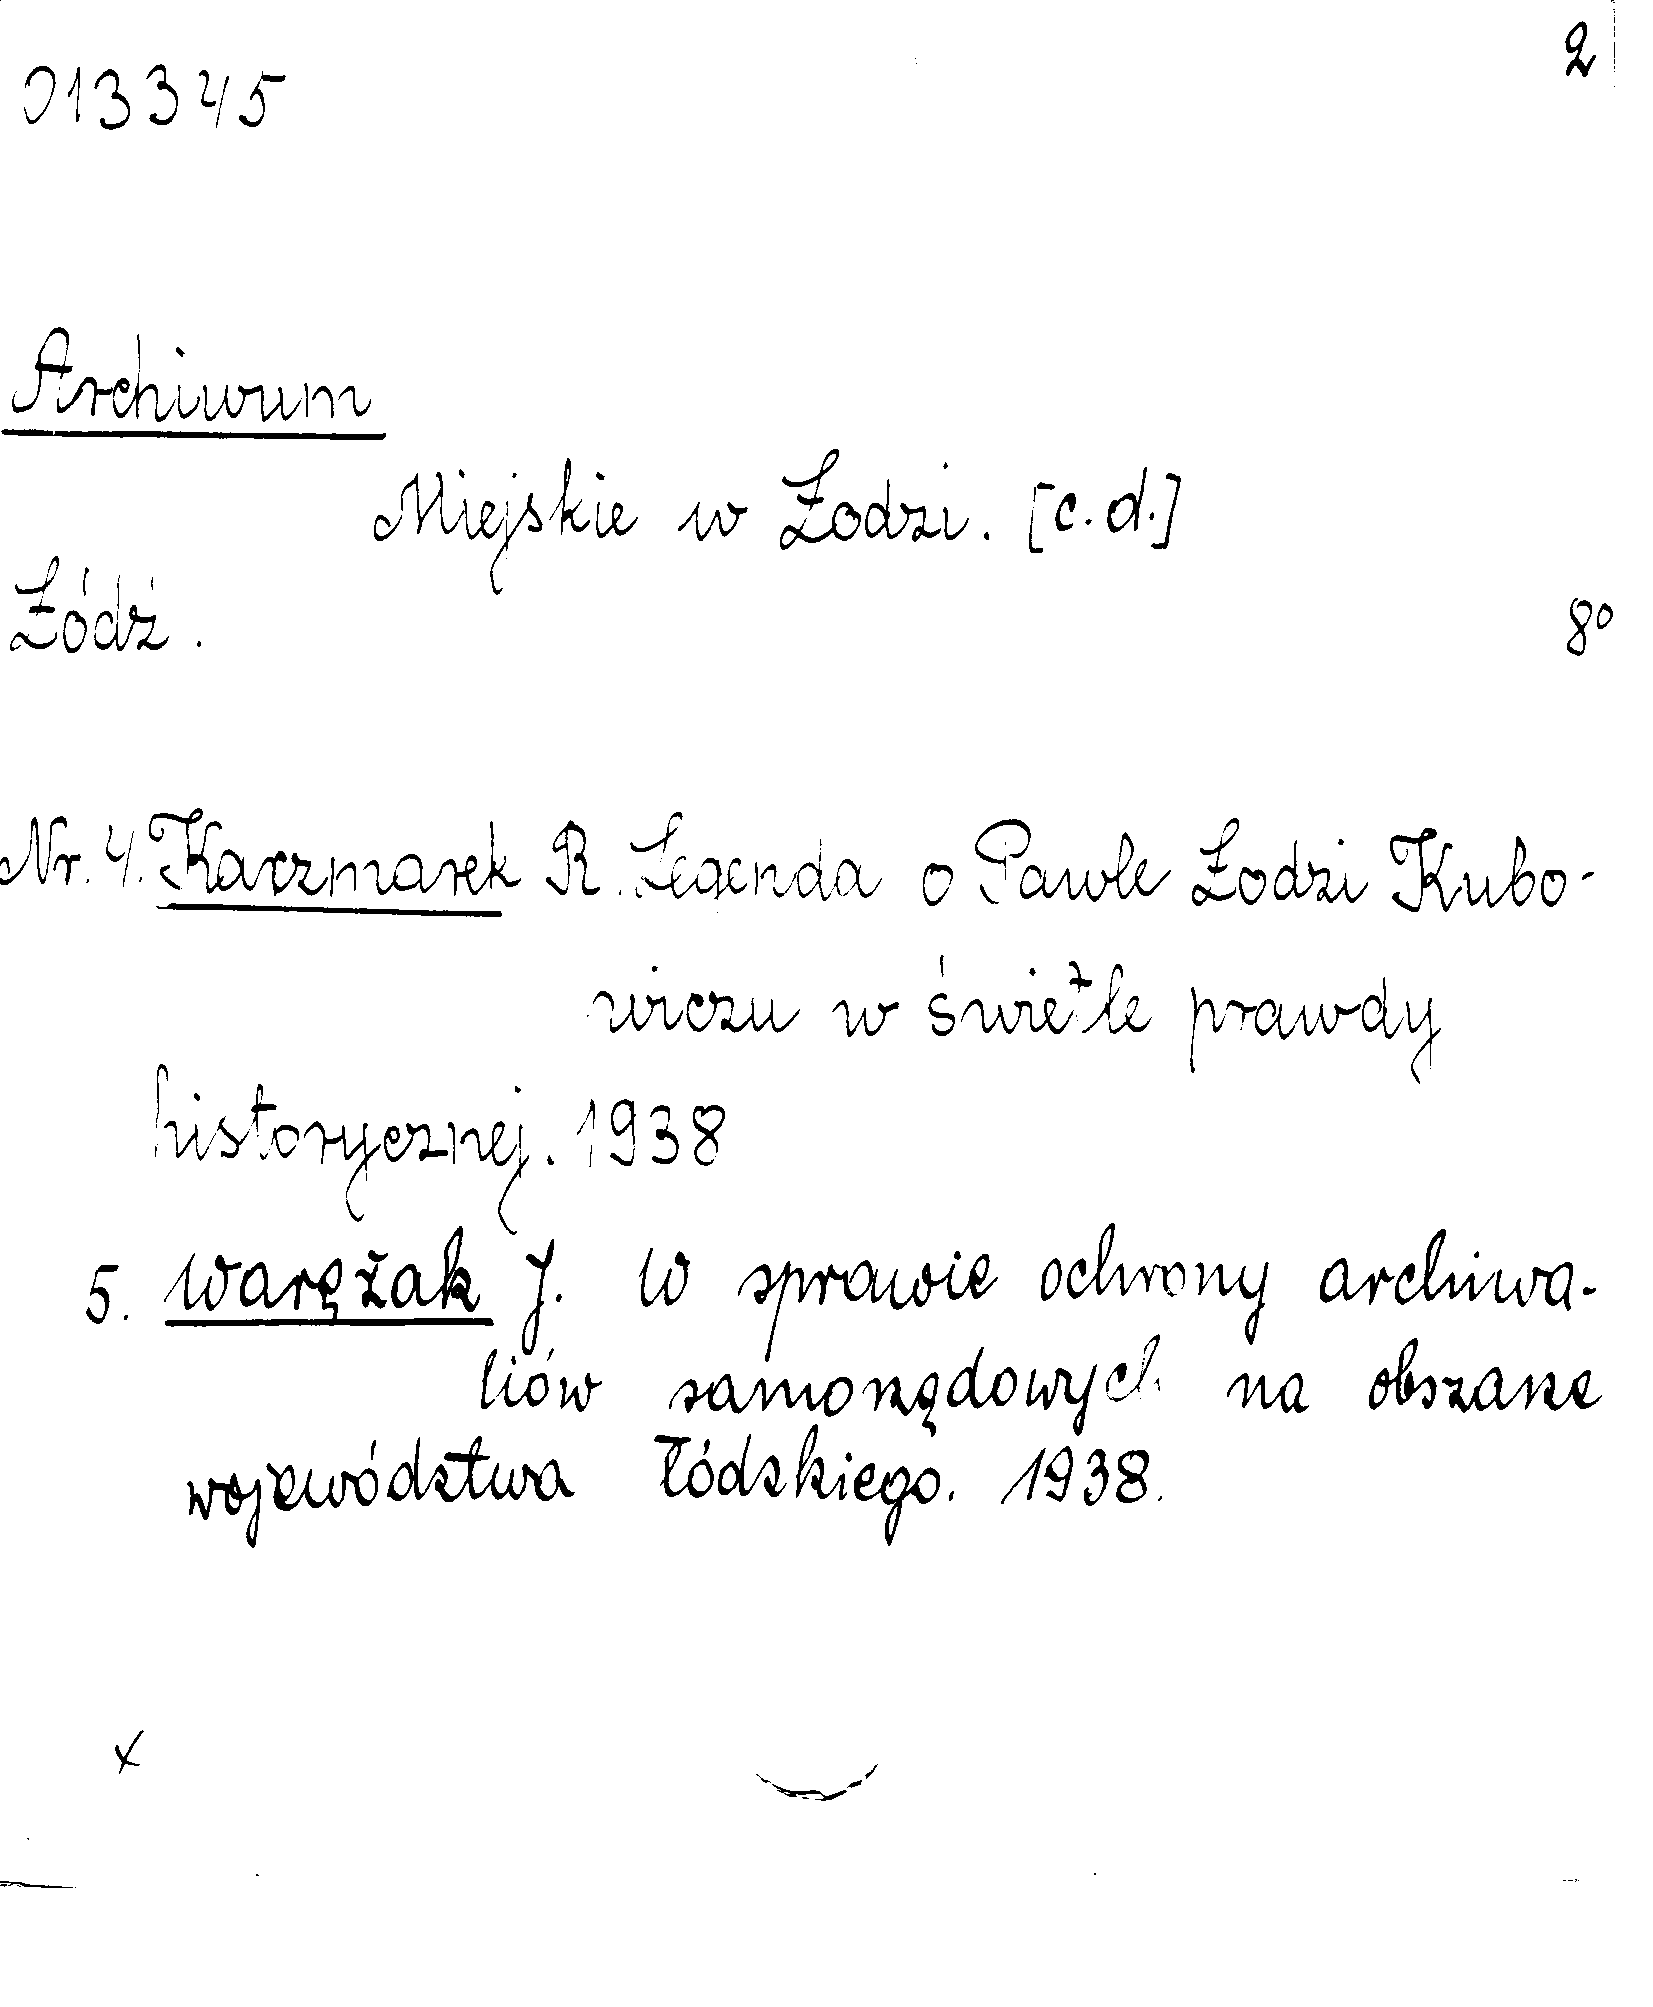 2
013345
Archiwum
Miejskie w Łodzi. [c.d.]
Łódź. 8°
Nr. 4. Kaczmarek R. Legenda o Pawle Łodzi Kubo-
wiczu w świetle prawdy
historycznej. 1938
5. Warężak J. W sprawie ochrony archiwa-
liów samorządowych na obszarze
województwa łódzkiego. 1938.
x